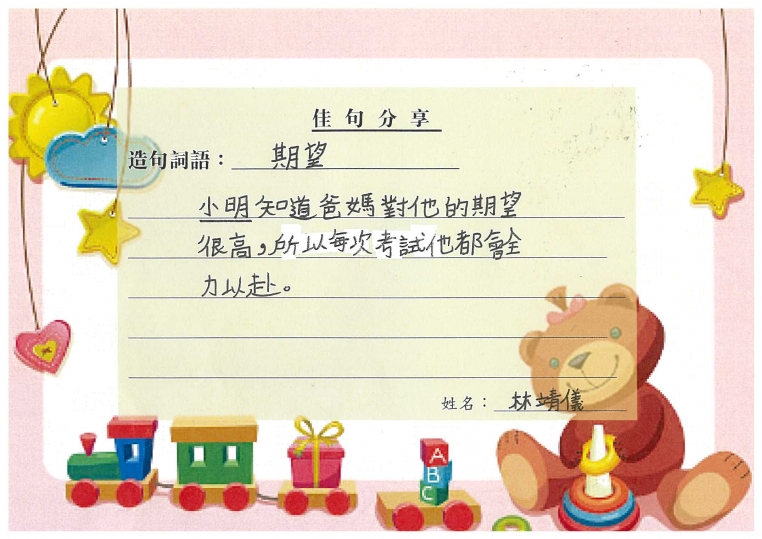 佳句分享
造句詞語：期望
小明知道爸媽對他的期望
很高，所以每次考試他都會全
力以赴。
姓名：林靖儀
A
B
C